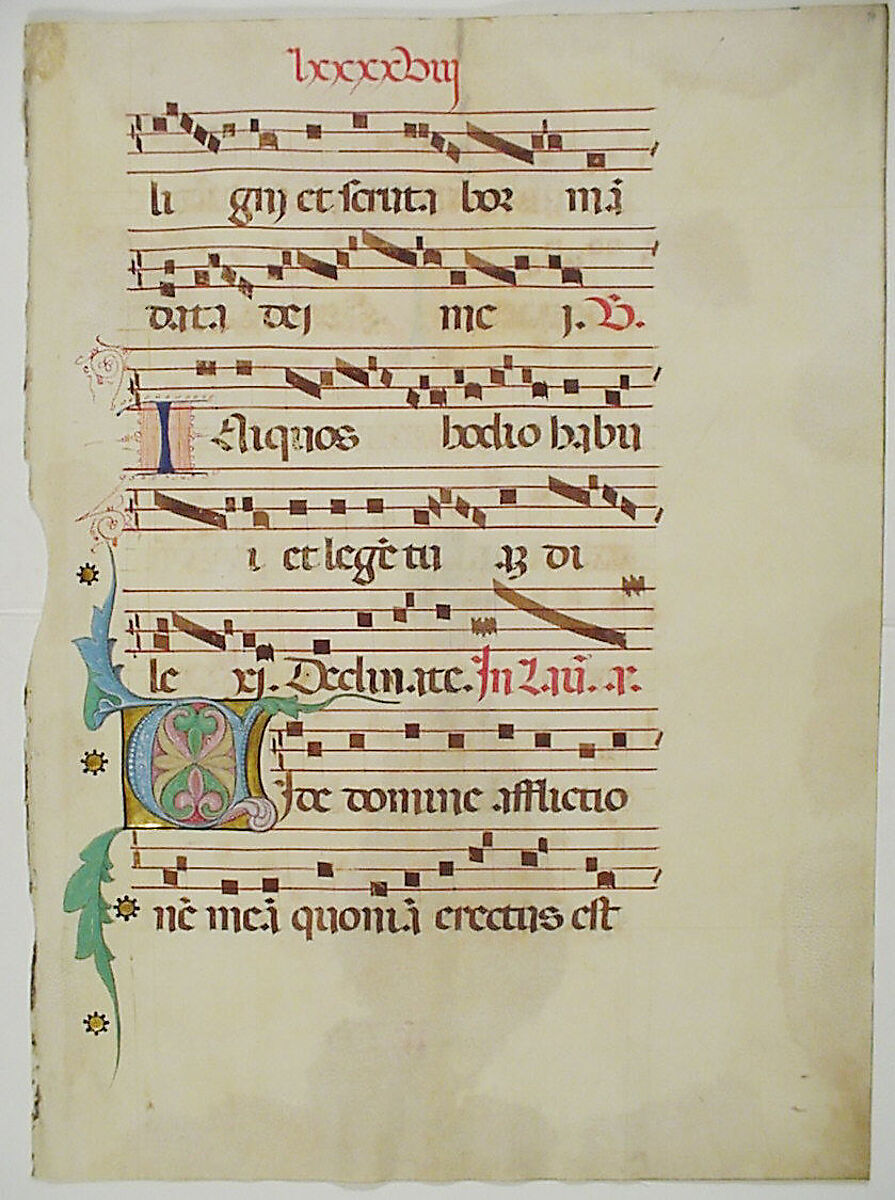 lxxxxviij
li gnj et scruta bor mā
data dej me j. V̄.
Iniquos hodio habu
i et legē tu aȝ di
le xj. Declinate. In Laū. .a.
Vide domine afflictio
nē meā quoniā erectus est